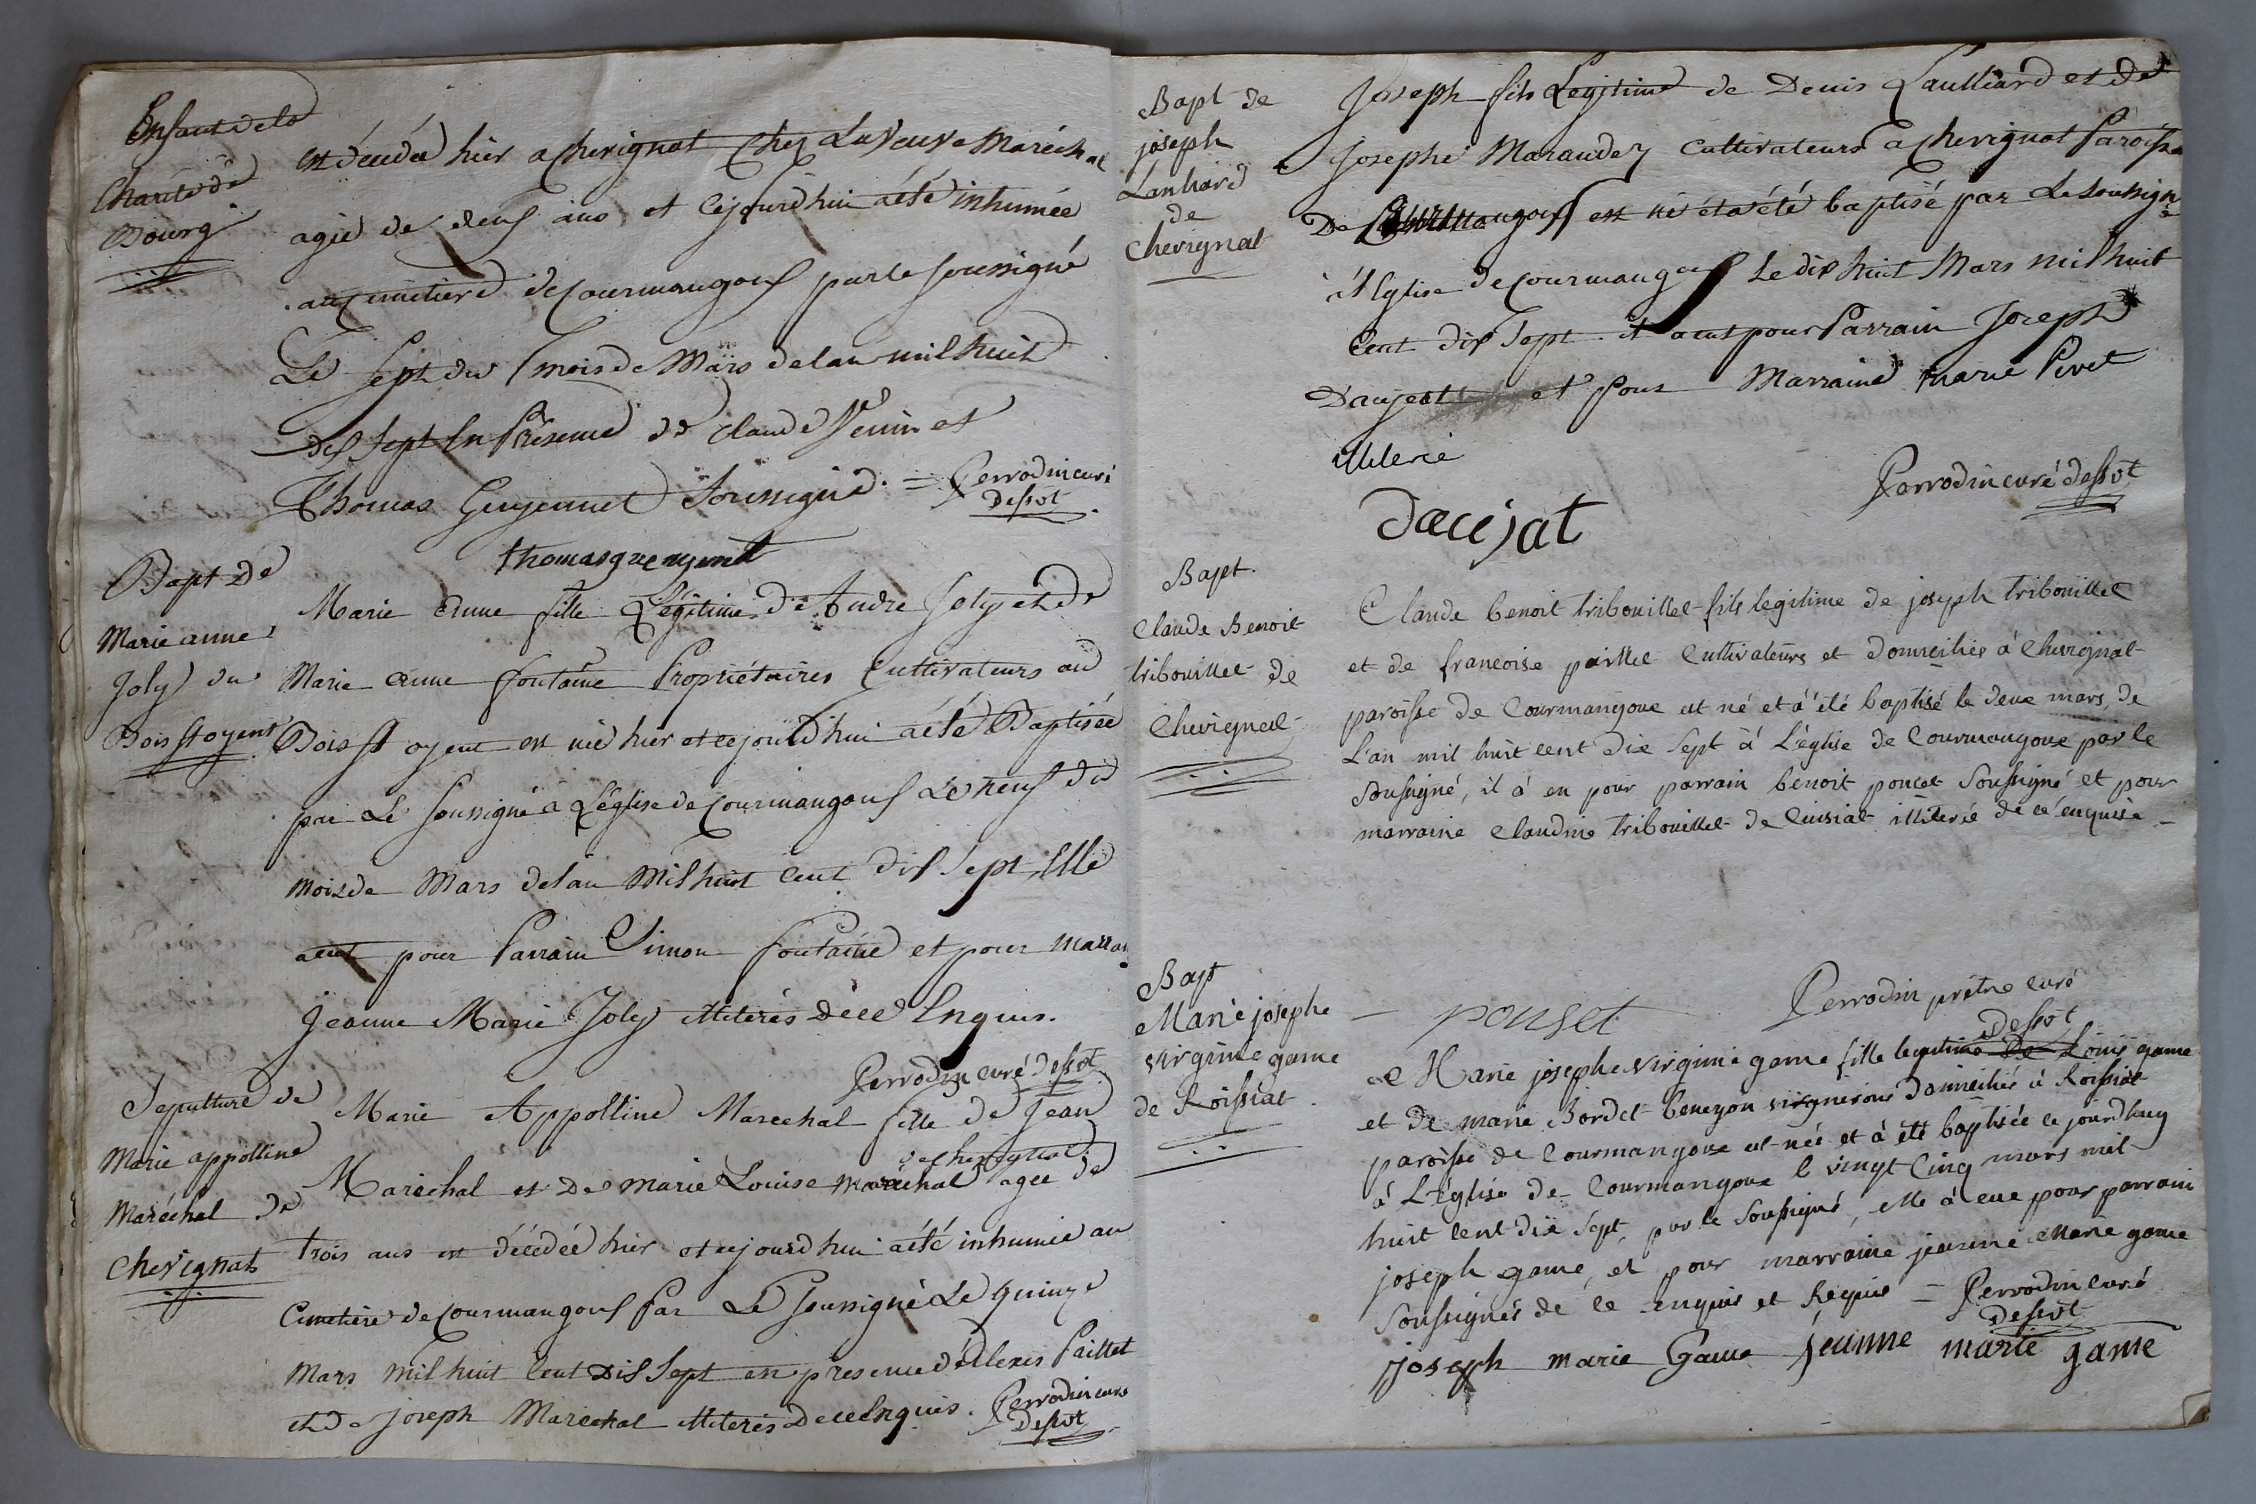 Enfant de la
Charité de
Bourg
est décédée hier a chevignat chez La Veuve Maréchal
agée de deuf ans et cejourd'hui aété inhumée
au cimetiere de Courmangouf par le soussigné
Le Sept du mois de Mars delan mil huit
dif Sept En Présence de Claude Venin et
Thomas Guyennet Soussigné. = Perrodin curé
dessvt
thomas gueyennet
Bapt de
Marie anne
Joly du
Bois St oyent
Marie Anne fille Légitime de Andre Joly et de
Marie Anne fontaine Propriétaires Cultivateurs au
Bois St oyent est née hier et cejourd'hui aété Baptisée
par Le soussigné à L'église de Courmangouf Le neuf du
mois de Mars delan Mil huit Cent Dif Sept, Elle
aeut pour Parrain Simon fontaine et pour Marraine
Jeanne Marie Joly illiterés de ce Enquis.
Perrodin curé dessvt
Sepulture de
Marie appolline
Maréchal de
Chevignat
Marie Appolline Marechal fille de Jean
de chevignat
Maréchal et De Marie Louise Maréchal agée de
trois ans est décédée hier et cejourd'hui aété inhumée au
Cimetiere de Courmangouf Par Le Soussigné Le quinze
Mars mil huit Cent Dif Sept en présence d'Alexis Paillet
et de Joseph Maréchal illiterés De ce Enquis. Perrodin curé
Dessvt
Bapt de
joseph
Lanliard
de
Chevignat
Joseph fils Légitime de Denis Laulliard et de
Josephe Maraudez Cultivateurs a chevignat Paroisse
De Courmangouf est né et a été baptisé par Le soussigné
à l'Eglise de Courmangouf Le dif huit Mars mil huit
Cent dif Sept. il aeut pour Parrain Joseph
Daujeat et Pour Marraine marie Pivet
illiterée
Perrodin curé dessvt
dacéjat
Bapt.
Claude Benoit
tribouillet de
Chevignat
Claude benoit tribouillet fils legitime de joseph tribouillet
et de francoise paillet Cultivateurs et domiciliés à Chevignat
paroisse de Courmangoux est né et à été baptisé le deux mars, de
L'an mil huit cent dix Sept à L'église de Courmangoux par le
Soussigné, il à eu pour parrain benoit poncet Soussigné et pour
marraine Claudine tribouillet de Cuisiat illiterée de ce enquise
ponset
Perrodin prêtre curé
dessvt
Bapt
Marie josephe
virginie game
de Roissiat
Marie josephe virginie game fille legitime de Louis game
et de marie Bordet-beneyon vignerons domiciliés à Roissiat
paroisse de Courmangoux est née et à été baptisée ce jourdhuy
à L'église de Courmangoux l vingt Cinq mars mil
huit cent dix Sept, par le Soussigné, elle à eue pour parrain
joseph game, et pour marraine jeanne Marie game
Soussignés de ce enquis et Requis = Perrodin curé
dessvt
joseph marie Game jeanne marie game